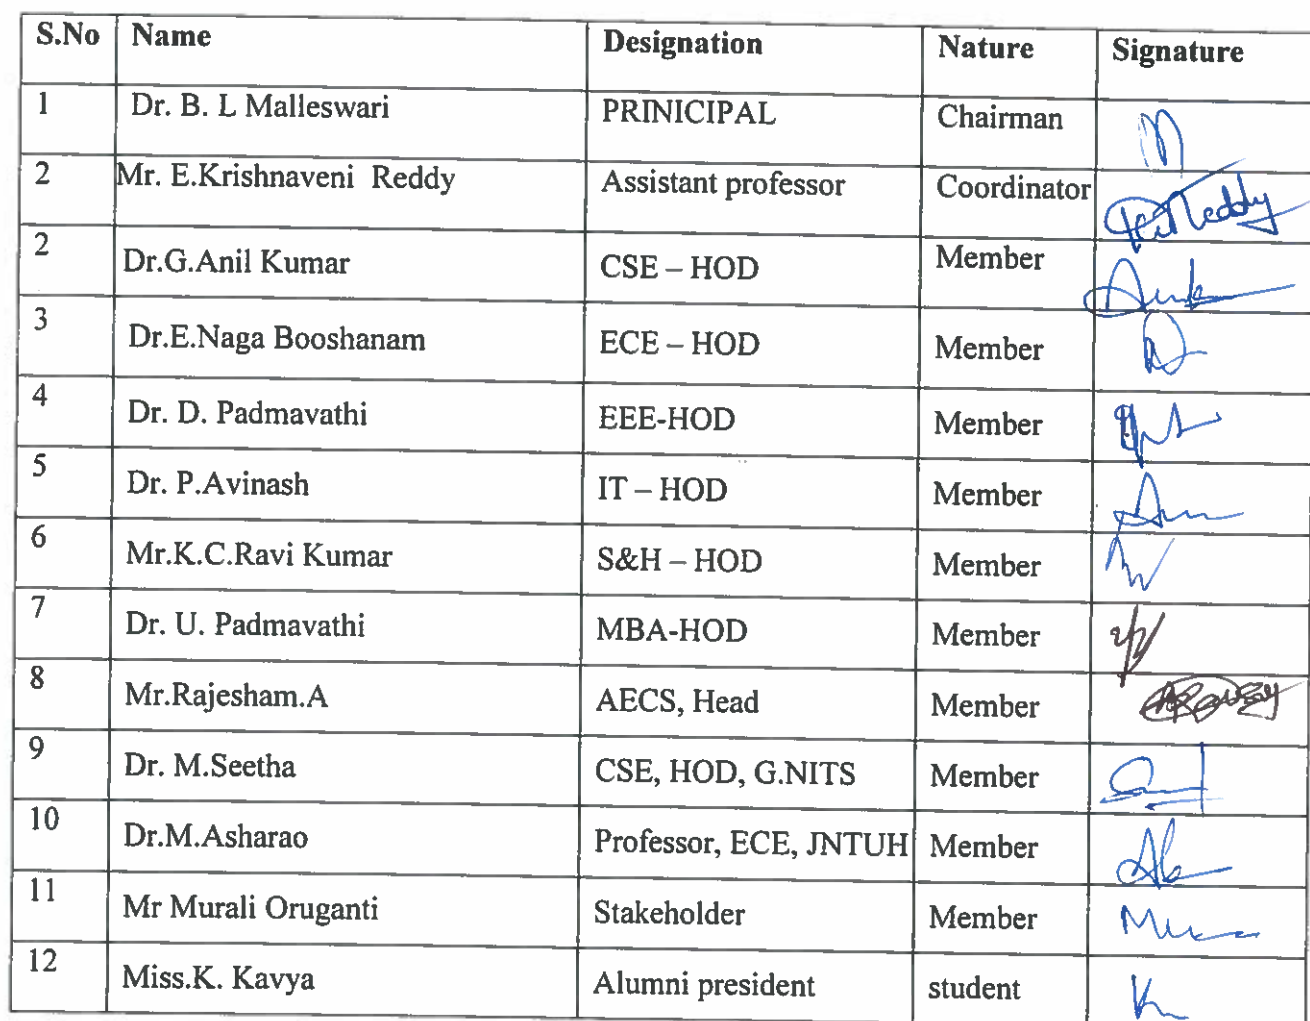 S.No Name Designation Nature Signature
1 Dr. B. L Malleswari PRINICIPAL Chairman
2 Mr. E.Krishnaveni Reddy Assistant professor Coordinator Reddy
2 Dr.G.Anil Kumar CSE – HOD Member
3 Dr.E.Naga Booshanam ECE – HOD Member
4 Dr. D. Padmavathi EEE-HOD Member
5 Dr. P.Avinash IT – HOD Member
6 Mr.K.C.Ravi Kumar S&H – HOD Member
7 Dr. U. Padmavathi MBA-HOD Member
8 Mr.Rajesham.A AECS, Head Member
9 Dr. M.Seetha CSE, HOD, G.NITS Member
10 Dr.M.Asharao Professor, ECE, JNTUH Member
11 Mr Murali Oruganti Stakeholder Member
12 Miss.K. Kavya Alumni president student